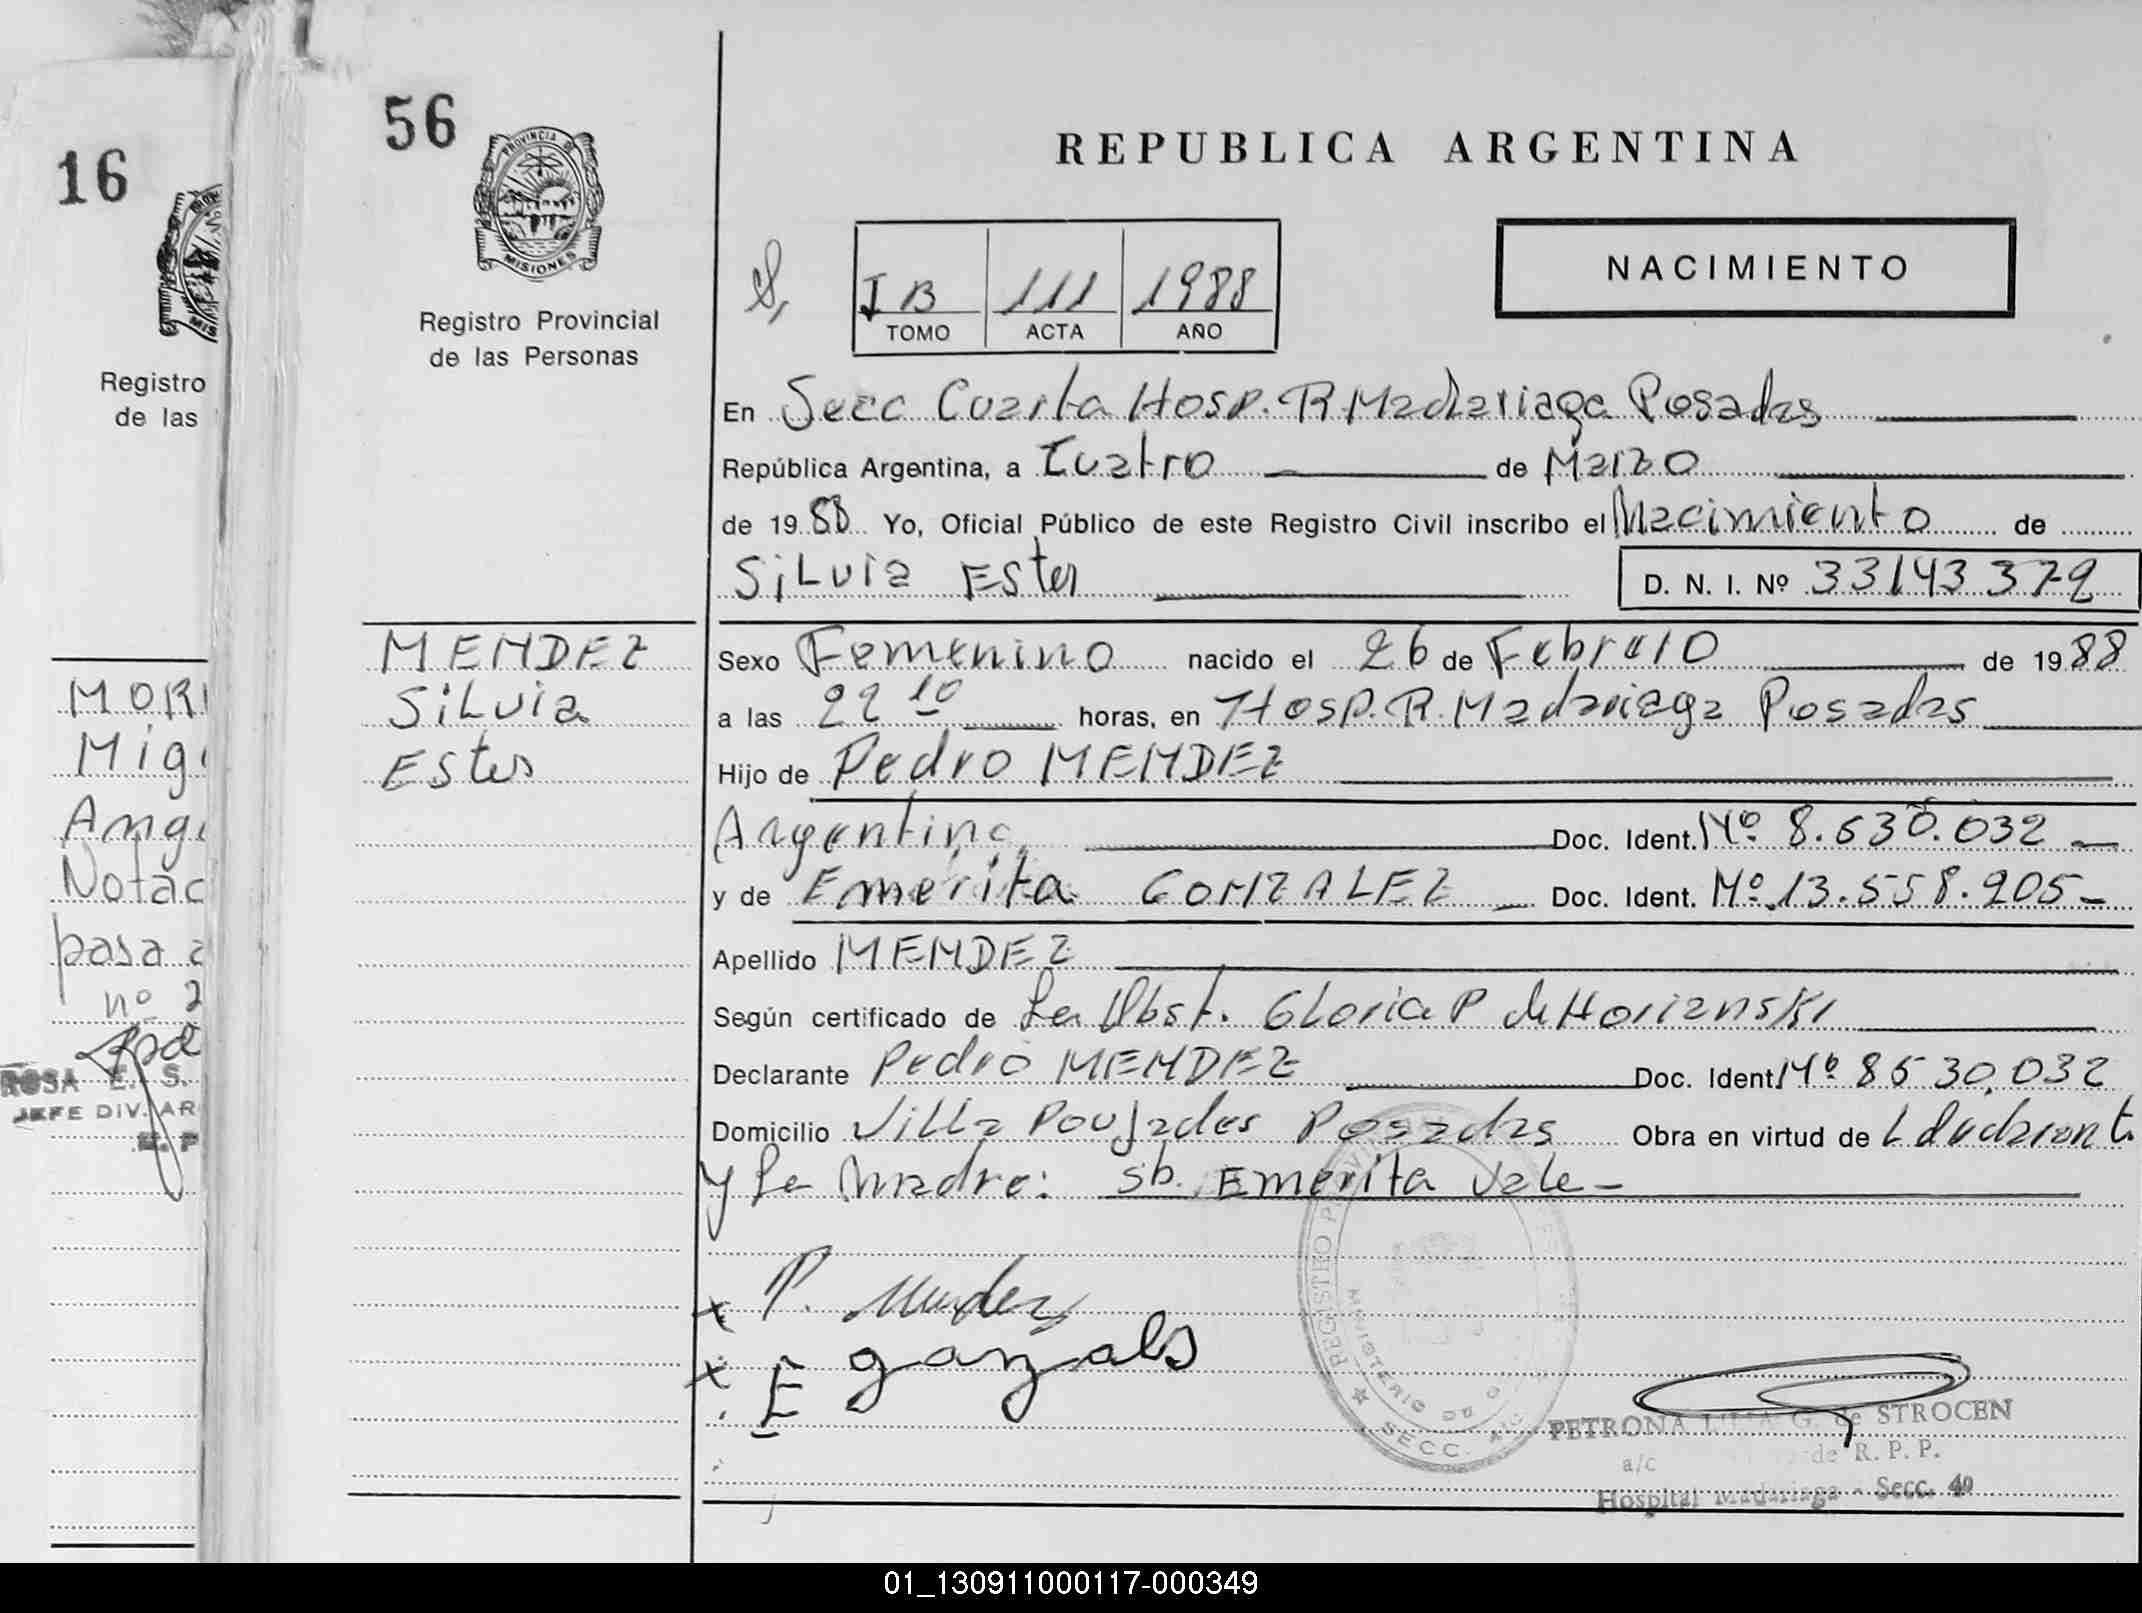 16
Registro
de las
MOR
Mig
Ang
Notac
pasa a
nº 2
ROSA E. S.
JEFE DIV. AR
56
PROVINCIA DE
MISIONES
Registro Provincial
de las Personas
MENDEZ
Silvia
Ester
REPUBLICA ARGENTINA
NACIMIENTO
I B 111 1988
TOMO ACTA AÑO
En Secc Cuarta Hosp. R Madariaga Posadas
República Argentina, a Cuatro de Marzo
de 1988 Yo, Oficial Público de este Registro Civil inscribo el Nacimiento de
Silvia Ester D. N. I. Nº 33143379
Sexo Femenino nacido el 26 de Febrero de 1988
a las 22 10 horas, en Hosp. R. Madariaga Posadas
Hijo de Pedro MENDEZ
Argentino Doc. Ident. Nº 8.530.032
y de Emérita GONZALEZ Doc. Ident. Nº 13.558.905
Apellido MENDEZ
Según certificado de La Obst. Gloria P de Horianski
Declarante Pedro MENDEZ Doc. Ident Nº 8530.032
Domicilio Villa Poujades Posadas Obra en virtud de L declarant.
y la madre: sb. Emerita Vale
P. Mendez
E gonzales
REGISTRO
MINISTERIO DE
SECC.
PETRONA G. de STROCEN
a/c de R. P. P.
Hospital Madariaga - Secc. 4º
01_130911000117-000349